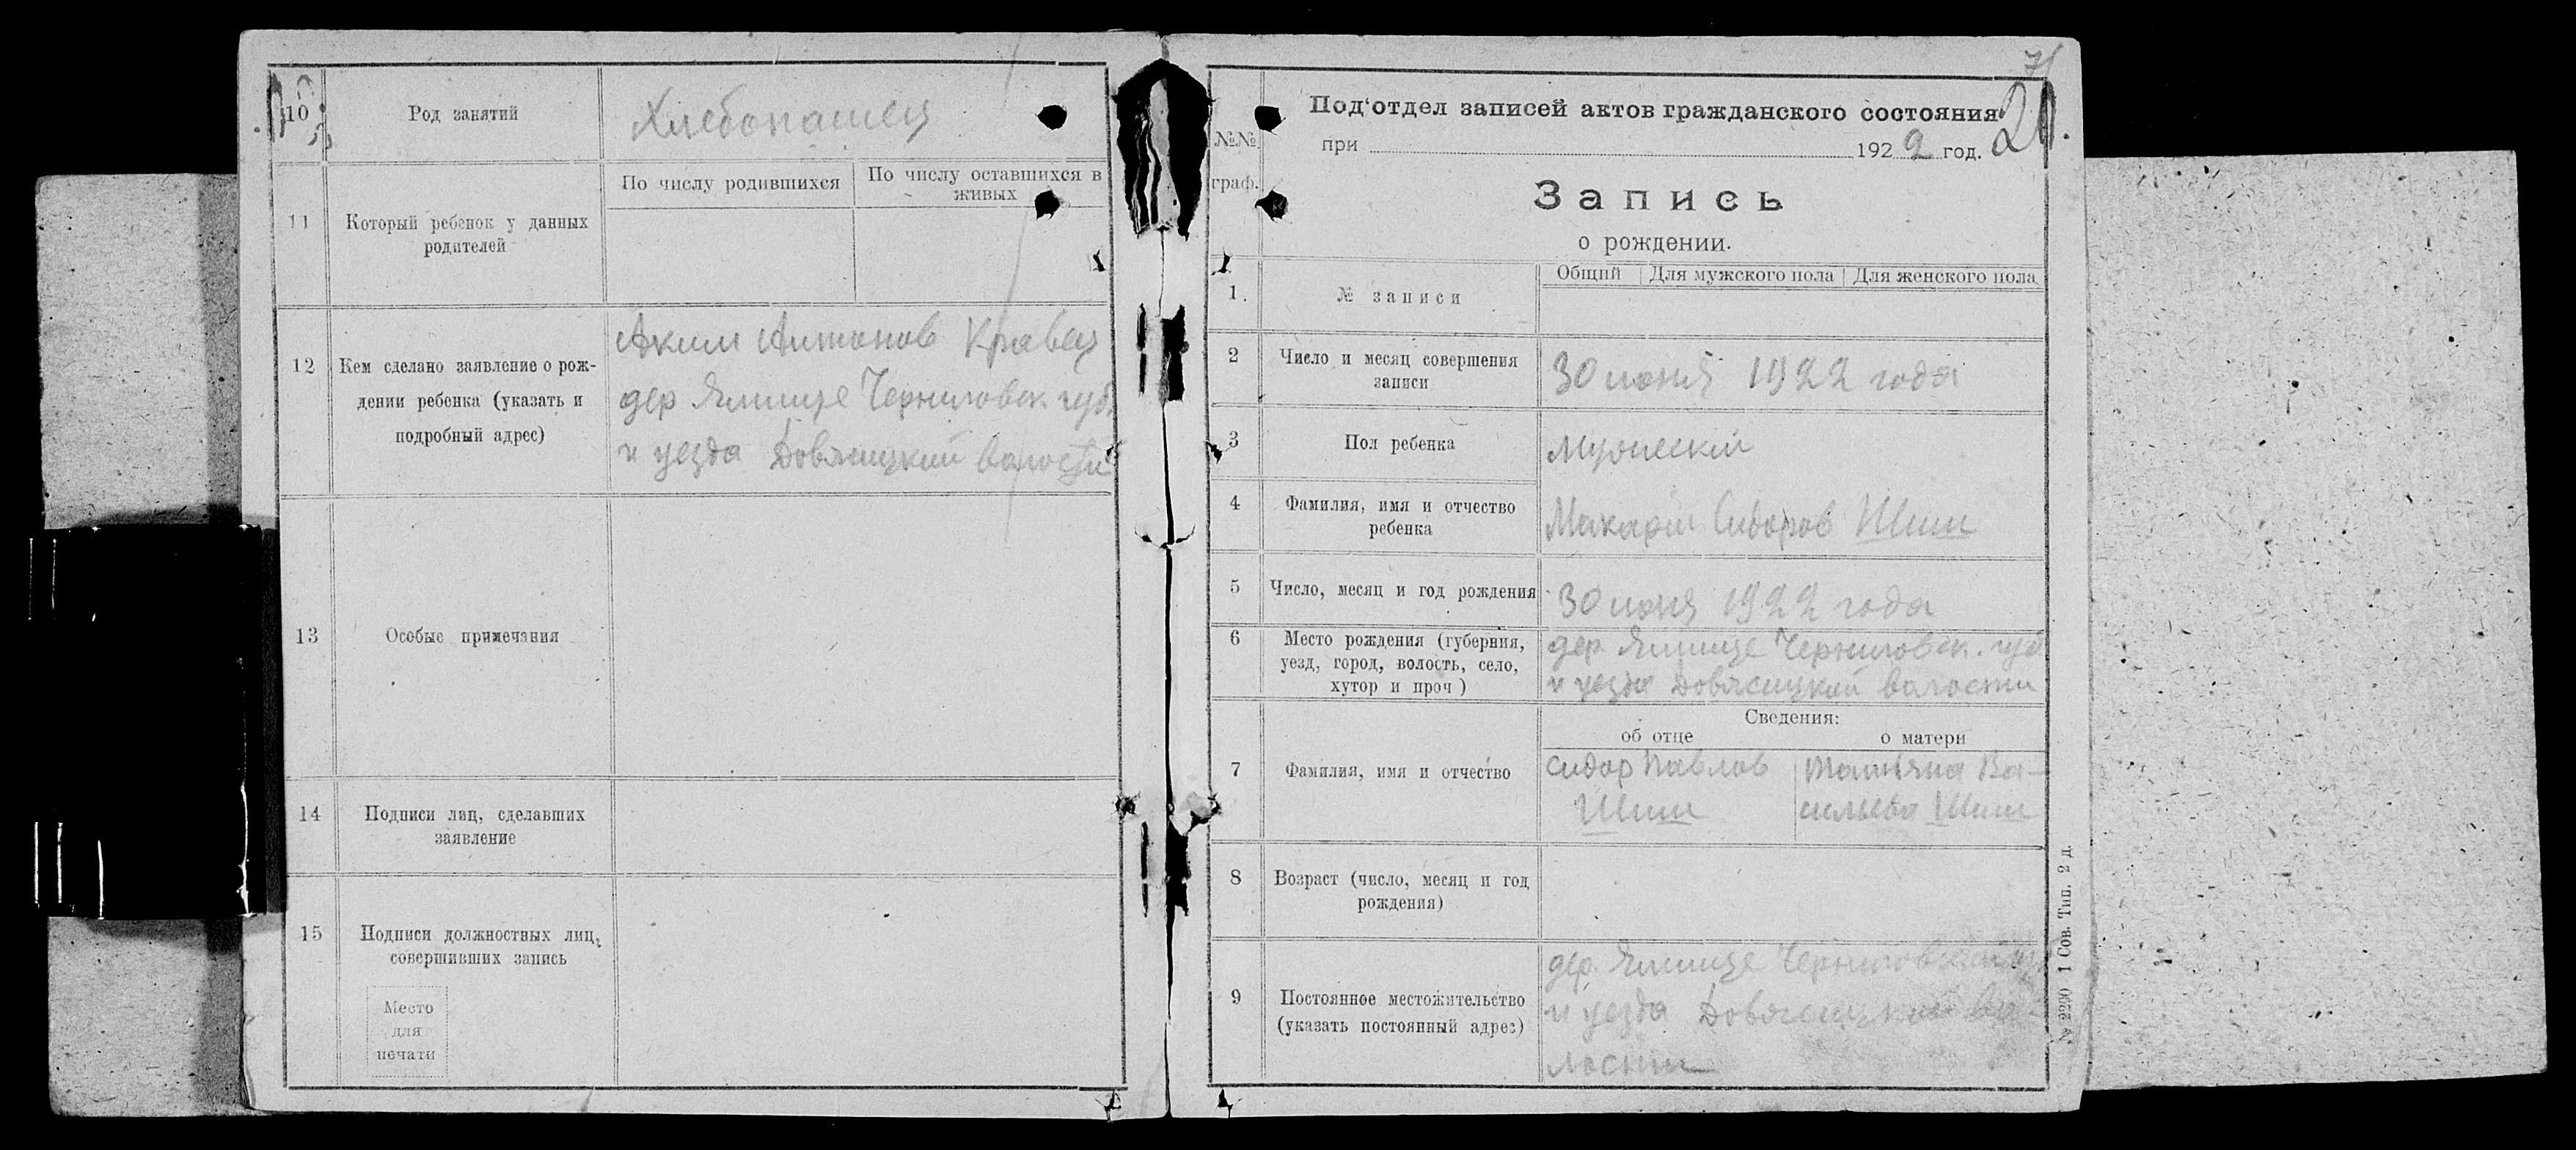 10
Род занятий
Хлебопашец
11
Который ребенок у данных
родителей
По числу родившихся
По числу оставшихся в
живых
12
Кем сделано заявление о рож-
дении ребенка (указать и
подробный адрес)
Аким Антонов Кравец
дер Ямище Черниговск. губ
и уезда Довляицкий
13
Особые примечания
14
Подписи лиц, сделавших
заявление
15
Подписи должностных лиц,
совершивших запись
Место
для
печати
71
№№
граф.
Под'отдел записей актов гражданского состояния
при 1922 год.
20.
Запись
о рождении.
1.
№ записи
Общий
Для мужского пола
Для женского пола
2
Число и месяц совершения
записи
30 июня 1922 года
3
Пол ребенка
Мужескій
4
Фамилия, имя и отчество
ребенка
Макарій Сидоров Шиш
5
Число, месяц и год рождения
30 июня 1922 года
6
Место рождения (губерния,
уезд, город, волость, село,
хутор и проч)
дер Ямище Черниговск. губ
и уезда волости
7
Фамилия, имя и отчество
Сведения:
об отце
о матери
Сидор Павлов
Шиш
Татіяна Ва-
сильева Шиш
8
Возраст (число, месяц и год
рождения)
9
Постоянное местожительство
(указать постоянный адрес)
дер. Ямище
и уезда во-
лости
№ 2290 1 Сов. Тип. 2 д.